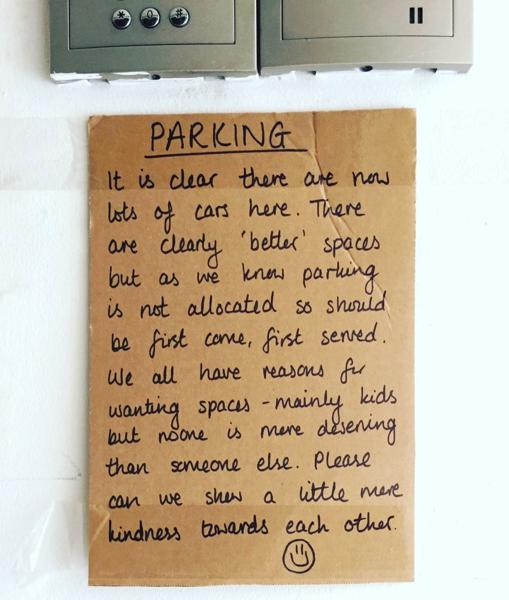 PARKING
It is clear there are now
lots of cars here. There
are clearly 'better' spaces
but as we know parking
is not allocated so should
be first come, first served.
We all have reasons for
wanting spaces - mainly kids
but noone is more deserving
than someone else. Please
can we show a little more
kindness towards each other.